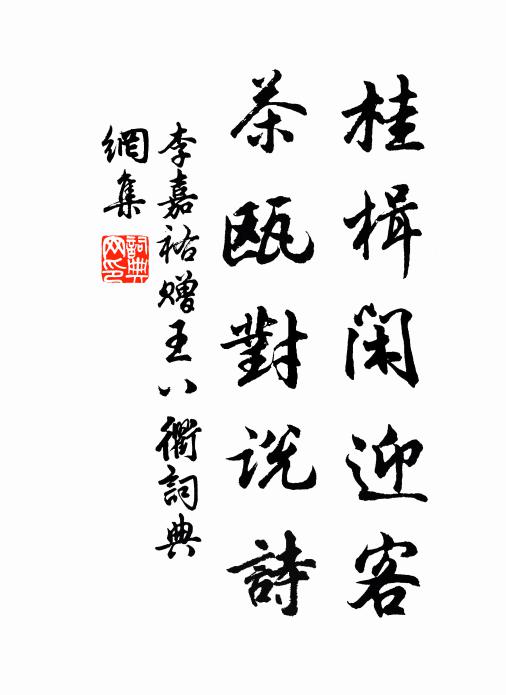 桂楫閑迎客
茶甌對说詩
李嘉祐赠王八衢詞典
網集
詞典网印